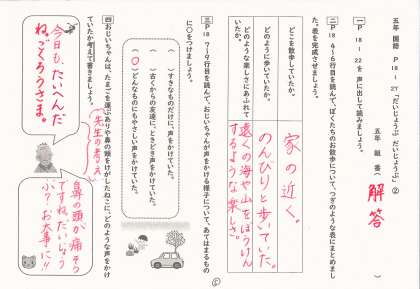 五年 国語 P18～27「だいじょうぶ だいじょうぶ」②
五年 組 番（ 解答 ）
一 P18～22を 声に出して読みましょう。
二 P18 4～6行目を読んで、ぼくたちのお散歩について、つぎのような表にまとめました。表を完成させましょう。
どこを散歩していたか。
家の近く。
どのように歩いていたか。
のんびりと歩いていた。
どのような楽しさにあふれていたか。
遠くの海や山をぼうけんするような楽しさ。
三 P18 7～9行目を読んで、おじいちゃんが声をかける様子について、あてはまるものに○をつけましょう。
（ ）すきなものだけに、声をかけていた。
（ ）古くからの友達に、ときどき声をかけていた。
（○）どんなものにもやさしい声をかけていた。
四 おじいちゃんは、たまごを運ぶありや鼻の頭をけがしたねこに、どのような声をかけていたか考えて書きましょう。
（先生の考え）
今日も、たいへんだね。ごくろうさま。
鼻の頭が痛そうですね。だいじょうぶか？お大事に!!
⑤